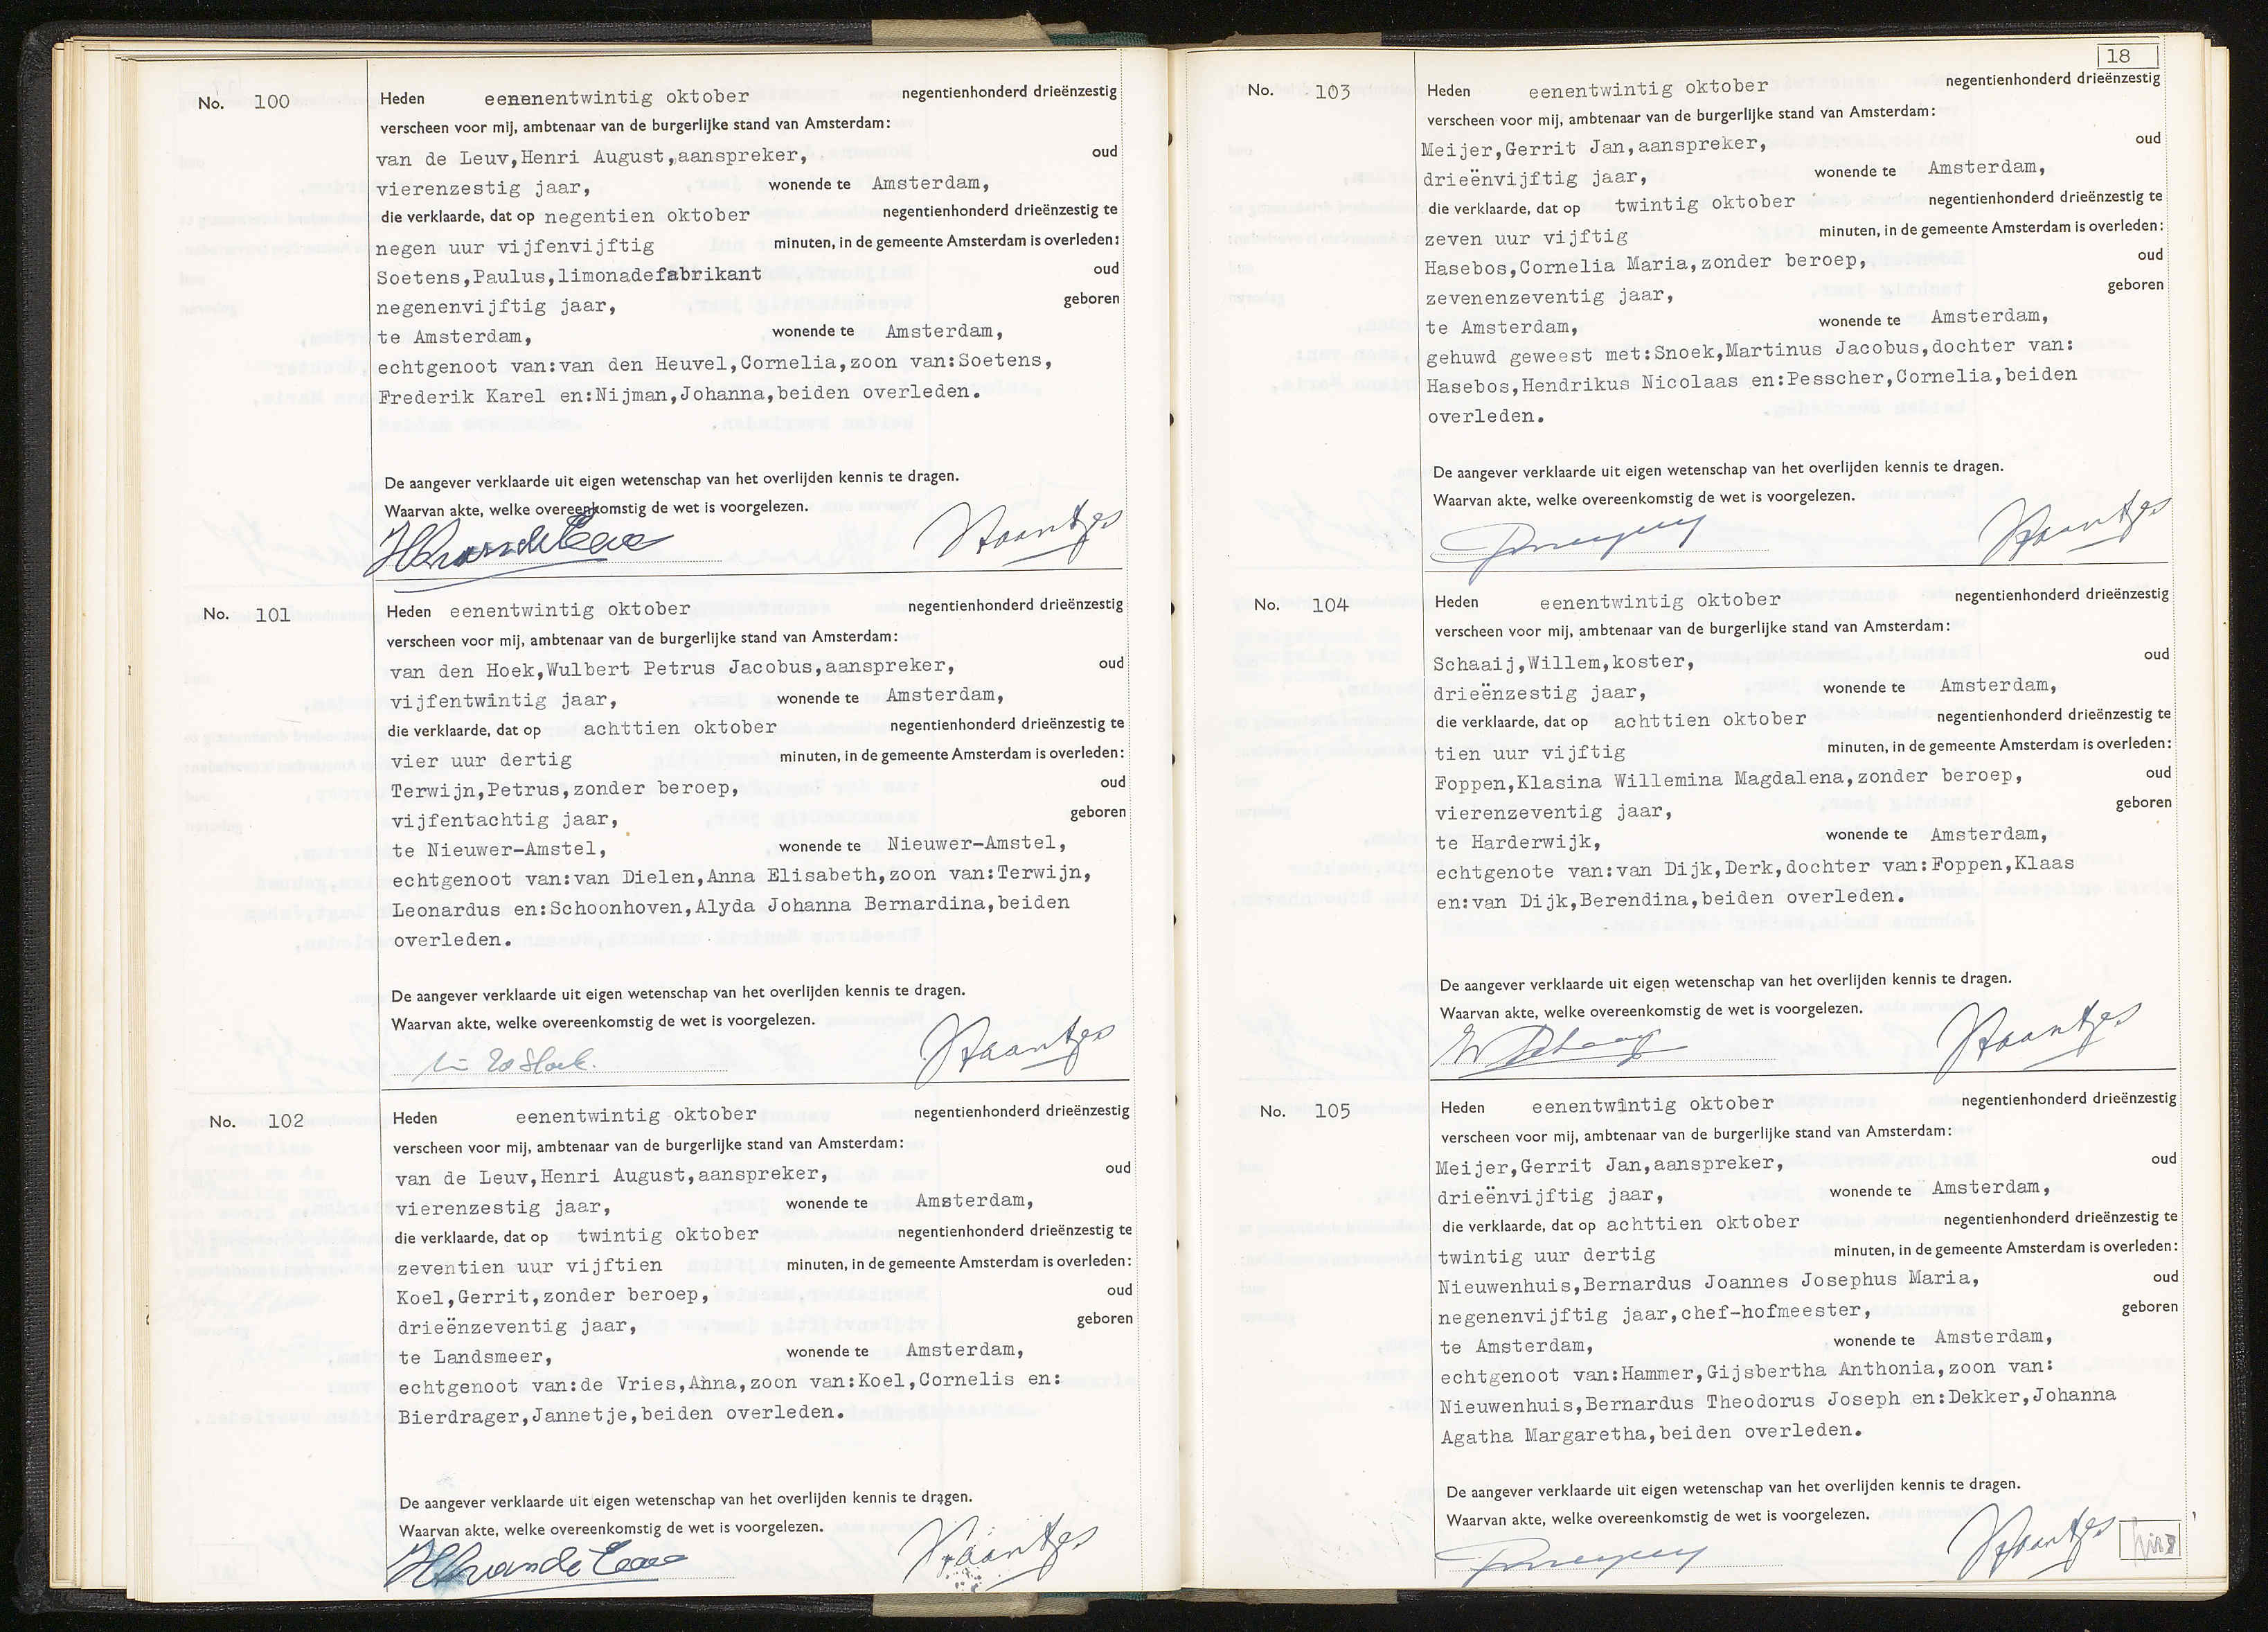 No. 100
Heden eenenentwintig oktober negentienhonderd drieënzestig
verscheen voor mij, ambtenaar van de burgerlijke stand van Amsterdam:
van de Leuv,Henri August,aanspreker, oud
vierenzestig jaar, wonende te Amsterdam,
die verklaarde, dat op negentien oktober negentienhonderd drieënzestig te
negen uur vijfenvijftig minuten, in de gemeente Amsterdam is overleden:
Soetens,Paulus,limonadefabrikant oud
negenenvijftig jaar, geboren
te Amsterdam, wonende te Amsterdam,
echtgenoot van:van den Heuvel,Cornelia,zoon van:Soetens,
Frederik Karel en:Nijman,Johanna,beiden overleden.
De aangever verklaarde uit eigen wetenschap van het overlijden kennis te dragen.
Waarvan akte, welke overeenkomstig de wet is voorgelezen.
No. 101
Heden eenentwintig oktober negentienhonderd drieënzestig
verscheen voor mij, ambtenaar van de burgerlijke stand van Amsterdam:
van den Hoek,Wulbert Petrus Jacobus,aanspreker, oud
vijfentwintig jaar, wonende te Amsterdam,
die verklaarde, dat op achttien oktober negentienhonderd drieënzestig te
vier uur dertig minuten, in de gemeente Amsterdam is overleden:
Terwijn,Petrus,zonder beroep, oud
vijfentachtig jaar, geboren
te Nieuwer-Amstel, wonende te Nieuwer-Amstel,
echtgenoot van:van Dielen,Anna Elisabeth,zoon van:Terwijn,
Leonardus en:Schoonhoven,Alyda Johanna Bernardina,beiden
overleden.
De aangever verklaarde uit eigen wetenschap van het overlijden kennis te dragen.
Waarvan akte, welke overeenkomstig de wet is voorgelezen.
No. 102
Heden eenentwintig oktober negentienhonderd drieënzestig
verscheen voor mij, ambtenaar van de burgerlijke stand van Amsterdam:
van de Leuv,Henri August,aanspreker, oud
vierenzestig jaar, wonende te Amsterdam,
die verklaarde, dat op twintig oktober negentienhonderd drieënzestig te
zeventien uur vijftien minuten, in de gemeente Amsterdam is overleden:
Koel,Gerrit,zonder beroep, oud
drieënzeventig jaar, geboren
te Landsmeer, wonende te Amsterdam,
echtgenoot van:de Vries,Ahna,zoon van:Koel,Cornelis en:
Bierdrager,Jannetje,beiden overleden.
De aangever verklaarde uit eigen wetenschap van het overlijden kennis te dragen.
Waarvan akte, welke overeenkomstig de wet is voorgelezen.
18
No. 103
Heden eenentwintig oktober negentienhonderd drieënzestig
verscheen voor mij, ambtenaar van de burgerlijke stand van Amsterdam:
Meijer,Gerrit Jan,aanspreker, oud
drieënvijftig jaar, wonende te Amsterdam,
die verklaarde, dat op twintig oktober negentienhonderd drieënzestig te
zeven uur vijftig minuten, in de gemeente Amsterdam is overleden:
Hasebos,Cornelia Maria,zonder beroep, oud
zevenenzeventig jaar, geboren
te Amsterdam, wonende te Amsterdam,
gehuwd geweest met:Snoek,Martinus Jacobus,dochter van:
Hasebos,Hendrikus Nicolaas en:Pesscher,Cornelia,beiden
overleden.
De aangever verklaarde uit eigen wetenschap van het overlijden kennis te dragen.
Waarvan akte, welke overeenkomstig de wet is voorgelezen.
No. 104
Heden eenentwintig oktober negentienhonderd drieënzestig
verscheen voor mij, ambtenaar van de burgerlijke stand van Amsterdam:
Schaaij,Willem,koster, oud
drieënzestig jaar, wonende te Amsterdam,
die verklaarde, dat op achttien oktober negentienhonderd drieënzestig te
tien uur vijftig minuten, in de gemeente Amsterdam is overleden:
Foppen,Klasina Willemina Magdalena,zonder beroep, oud
vierenzeventig jaar, geboren
te Harderwijk, wonende te Amsterdam,
echtgenote van:van Dijk,Derk,dochter van:Foppen,Klaas
en:van Dijk,Berendina,beiden overleden.
De aangever verklaarde uit eigen wetenschap van het overlijden kennis te dragen.
Waarvan akte, welke overeenkomstig de wet is voorgelezen.
No. 105
Heden eenentwintig oktober negentienhonderd drieënzestig
verscheen voor mij, ambtenaar van de burgerlijke stand van Amsterdam:
Meijer,Gerrit Jan,aanspreker, oud
drieënvijftig jaar, wonende te Amsterdam,
die verklaarde, dat op achttien oktober negentienhonderd drieënzestig te
twintig uur dertig minuten, in de gemeente Amsterdam is overleden:
Nieuwenhuis,Bernardus Joannes Josephus Maria, oud
negenenvijftig jaar,chef-hofmeester, geboren
te Amsterdam, wonende te Amsterdam,
echtgenoot van:Hammer,Gijsbertha Anthonia,zoon van:
Nieuwenhuis,Bernardus Theodorus Joseph en:Dekker,Johanna
Agatha Margaretha,beiden overleden.
De aangever verklaarde uit eigen wetenschap van het overlijden kennis te dragen.
Waarvan akte, welke overeenkomstig de wet is voorgelezen.